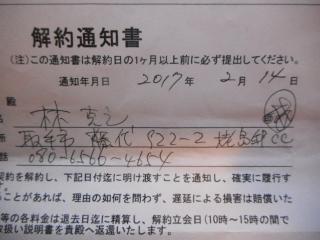 解約通知書
(注)この通知書は解約日の1ヶ月以上前に必ず提出してください。
通知年月日 2017年 2月 14日
殿
名 林
所 取手市 代 922-2
話 080-6566-4654
契約を解約し、下記日付迄に明け渡すことを通知し、確実に履行す
ることがあれば、理由の如何を問わず、遅延による損害は賠償いた
等の各料金は退去日迄に精算し、解約立会日(10時〜15時の間で
取扱い説明書を貴殿へ返還いたします。